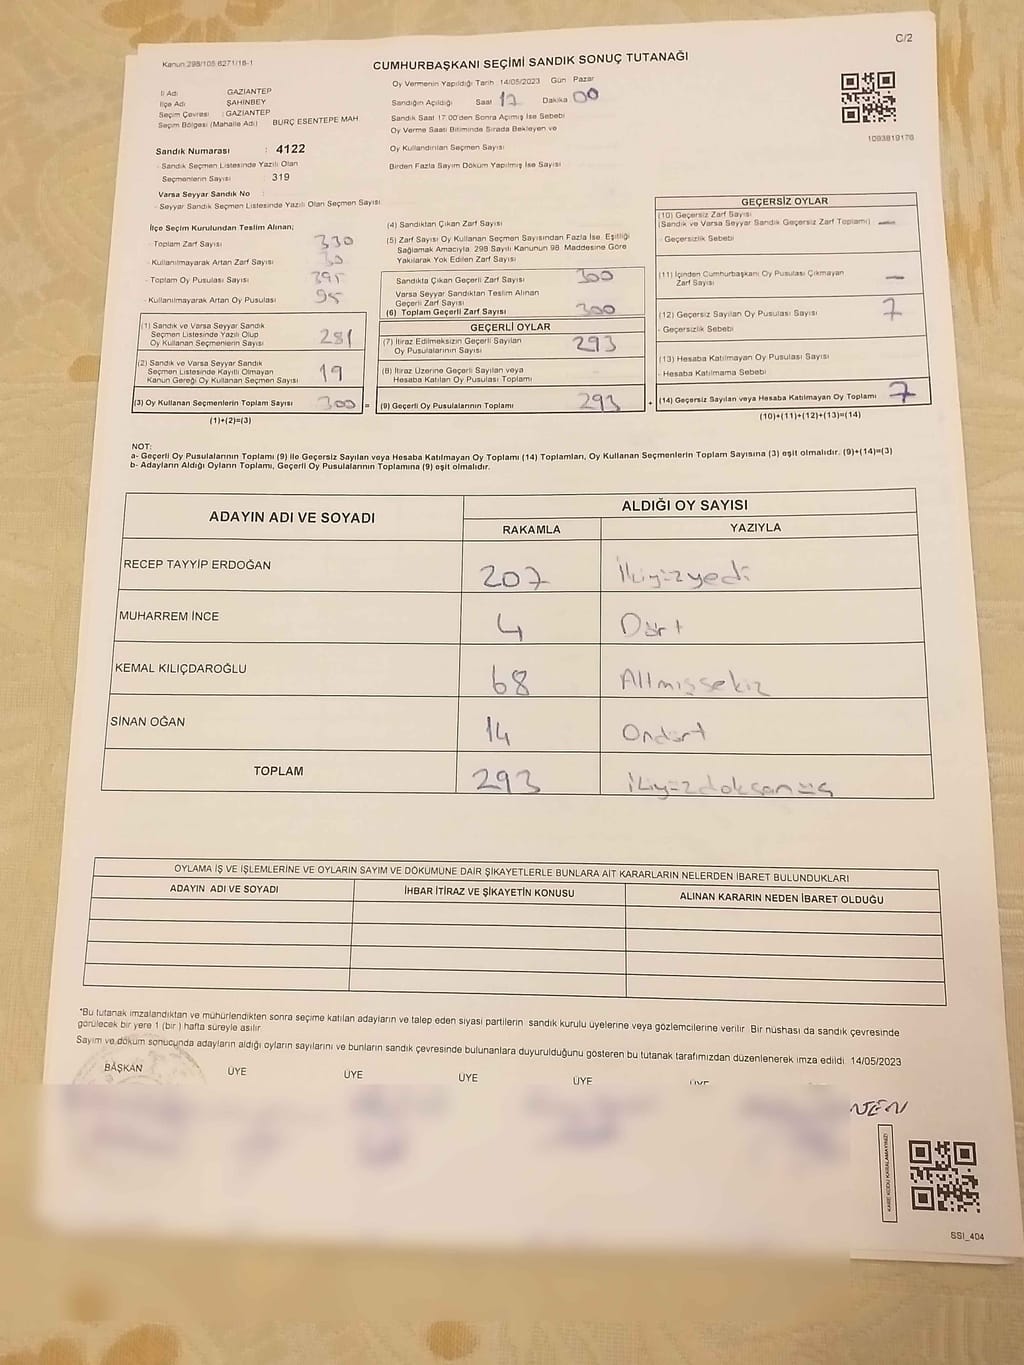 C/2
Kanun:298/105 6271/18-1
CUMHURBAŞKANI SEÇİMİ SANDIK SONUÇ TUTANAĞI
İl Adı GAZİANTEP
İlçe Adı ŞAHİNBEY
Seçim Çevresi : GAZİANTEP
Seçim Bölgesi (Mahalle Adı) BURÇ ESENTEPE MAH.
Oy Vermenin Yapıldığı Tarih 14/05/2023 Gün Pazar
Sandığın Açıldığı Saat 17 Dakika 00
Sandık Saat 17:00'den Sonra Açımış İse Sebebi
Oy Verme Saati Bitiminde Sırada Bekleyen ve
Oy Kullandırılan Seçmen Sayısı
Birden Fazla Sayım Döküm Yapılmış İse Sayısı
1093819176
Sandık Numarası : 4122
- Sandık Seçmen Listesinde Yazılı Olan
Seçmenlerin Sayısı : 319
Varsa Seyyar Sandık No :
- Seyyar Sandık Seçmen Listesinde Yazılı Olan Seçmen Sayısı
İlçe Seçim Kurulundan Teslim Alınan;
- Toplam Zarf Sayısı 330
- Kullanılmayarak Artan Zarf Sayısı 30
- Toplam Oy Pusulası Sayısı 395
- Kullanılmayarak Artan Oy Pusulası 95
(1) Sandık ve Varsa Seyyar Sandık
Seçmen Listesinde Yazılı Olup
Oy Kullanan Seçmenlerin Sayısı 281
(2) Sandık ve Varsa Seyyar Sandık
Seçmen Listesinde Kayıtlı Olmayan
Kanun Gereği Oy Kullanan Seçmen Sayısı 19
(3) Oy Kullanan Seçmenlerin Toplam Sayısı 300 =
(1)+(2)=(3)
(4) Sandıktan Çıkan Zarf Sayısı
(5) Zarf Sayısı Oy Kullanan Seçmen Sayısından Fazla İse, Eşitliği
Sağlamak Amacıyla, 298 Sayılı Kanunun 98. Maddesine Göre
Yakılarak Yok Edilen Zarf Sayısı
Sandıkta Çıkan Geçerli Zarf Sayısı 300
Varsa Seyyar Sandıktan Teslim Alınan
Geçerli Zarf Sayısı
(6) Toplam Geçerli Zarf Sayısı 300
GEÇERLİ OYLAR
(7) İtiraz Edilmeksizin Geçerli Sayılan
Oy Pusulalarının Sayısı 293
(8) İtiraz Üzerine Geçerli Sayılan veya
Hesaba Katılan Oy Pusulası Toplamı
(9) Geçerli Oy Pusulalarının Toplamı 293 +
GEÇERSİZ OYLAR
(10) Geçersiz Zarf Sayısı
(Sandık ve Varsa Seyyar Sandık Geçersiz Zarf Toplamı) —
- Geçersizlik Sebebi
(11) İçinden Cumhurbaşkanı Oy Pusulası Çıkmayan
Zarf Sayısı —
(12) Geçersiz Sayılan Oy Pusulası Sayısı 7
- Geçersizlik Sebebi
(13) Hesaba Katılmayan Oy Pusulası Sayısı
- Hesaba Katılmama Sebebi
(14) Geçersiz Sayılan veya Hesaba Katılmayan Oy Toplamı 7
(10)+(11)+(12)+(13)=(14)
NOT:
a- Geçerli Oy Pusulalarının Toplamı (9) ile Geçersiz Sayılan veya Hesaba Katılmayan Oy Toplamı (14) Toplamları, Oy Kullanan Seçmenlerin Toplam Sayısına (3) eşit olmalıdır. (9)+(14)=(3)
b- Adayların Aldığı Oyların Toplamı, Geçerli Oy Pusulalarının Toplamına (9) eşit olmalıdır.
ADAYIN ADI VE SOYADI
ALDIĞI OY SAYISI
RAKAMLA YAZIYLA
RECEP TAYYİP ERDOĞAN 207 İkiyüzyedi
MUHARREM İNCE 4 Dört
KEMAL KILIÇDAROĞLU 68 Altmışsekiz
SİNAN OĞAN 14 Ondört
TOPLAM 293 İkiyüzdoksanüç
OYLAMA İŞ VE İŞLEMLERİNE VE OYLARIN SAYIM VE DÖKÜMÜNE DAİR ŞİKAYETLERLE BUNLARA AİT KARARLARIN NELERDEN İBARET BULUNDUKLARI
ADAYIN ADI VE SOYADI İHBAR İTİRAZ VE ŞİKAYETİN KONUSU ALINAN KARARIN NEDEN İBARET OLDUĞU
*Bu tutanak imzalandıktan ve mühürlendikten sonra seçime katılan adayların ve talep eden siyasi partilerin sandık kurulu üyelerine veya gözlemcilerine verilir. Bir nüshası da sandık çevresinde
görülecek bir yere 1 (bir ) hafta süreyle asılır.
Sayım ve döküm sonucunda adayların aldığı oyların sayılarını ve bunların sandık çevresinde bulunanlara duyurulduğunu gösteren bu tutanak tarafımızdan düzenlenerek imza edildi. 14/05/2023
BAŞKAN ÜYE ÜYE ÜYE ÜYE ÜYE
KARE KODU KARALAMAYINIZ!
SSI_404